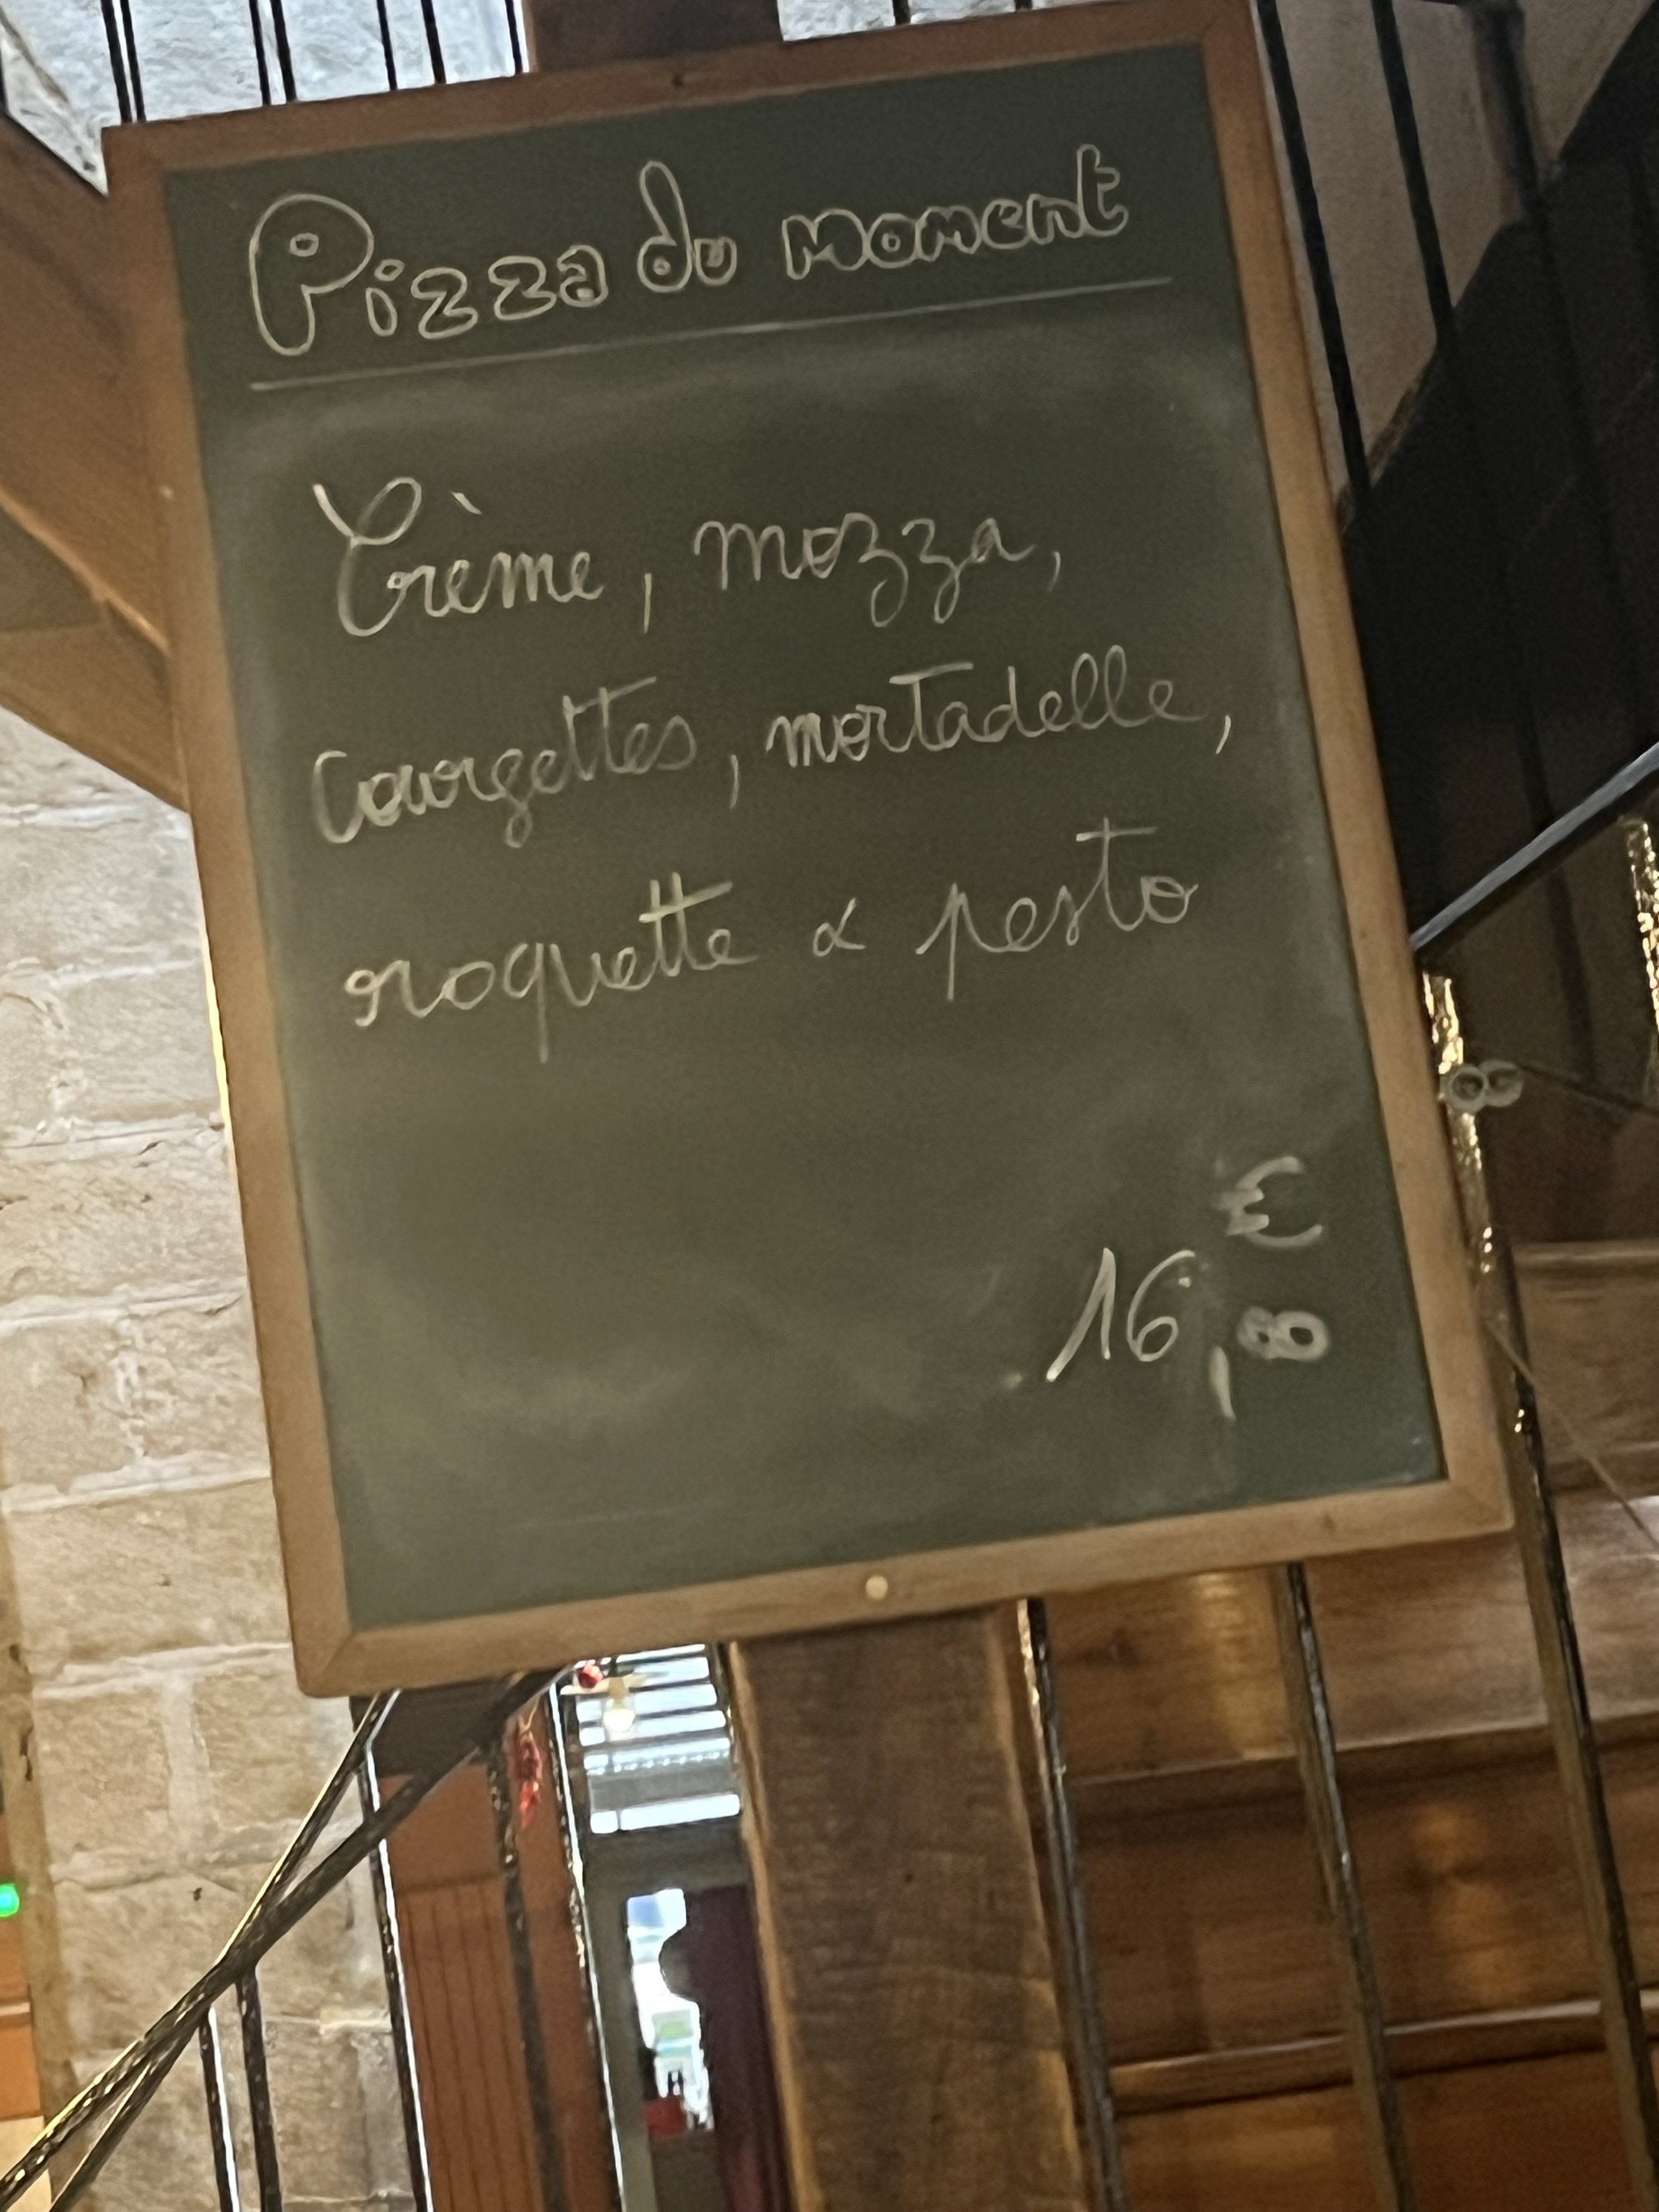 Pizza du moment
Crème, mozza,
courgettes, mortadelle,
roquette & pesto
€
16,80